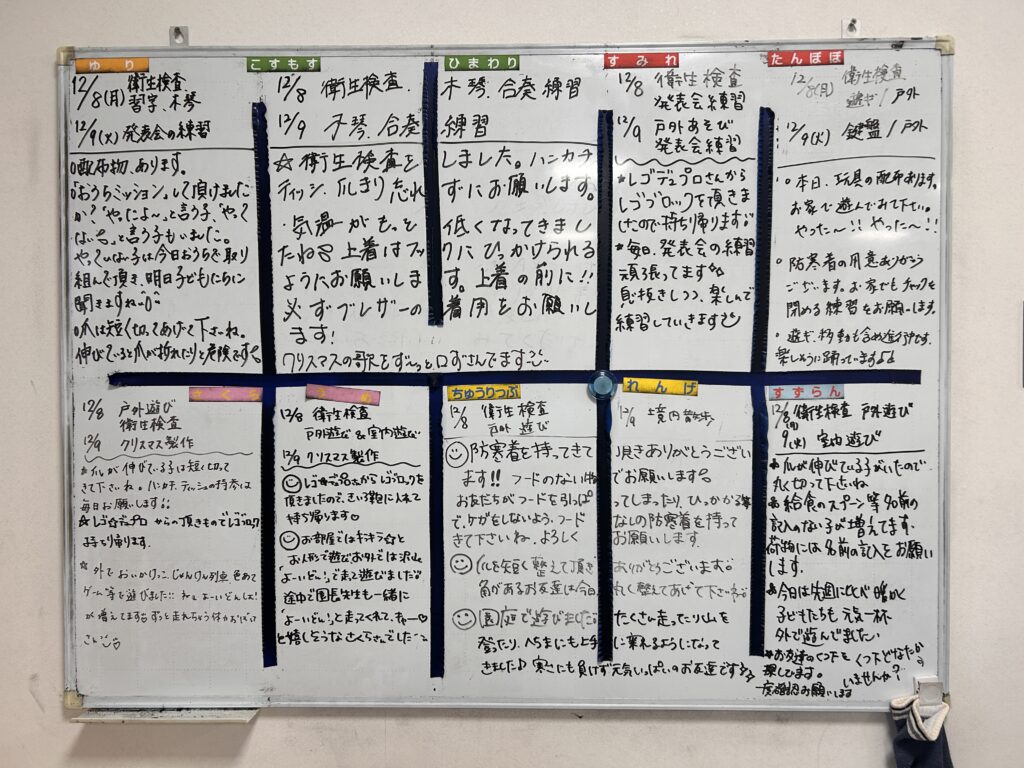 ゆり
12/8(月) 衛生検査
習字、木琴
12/9(火) 発表会の練習
○配布物、あります。
○おうちミッション。して頂けました
か？“やったよ～”と言う子、“やって
ない。”と言う子もいました。
やっていない子は今日おうちで取り
組んで頂き、明日子どもたちに
聞きますね
○爪は短く切ってあげて下さいね。
伸びていると爪が折れたりと危険です。
こすもす
ひまわり
12/8 衛生検査. 木琴、合奏練習
12/9 木琴、合奏練習
☆衛生検査をしました。ハンカチ
ティッシュ、爪きり忘れずにお願いします。
気温がもっと低くなってきまし
たね 上着はフックにひっかけられる
ようにお願いします。上着の前に!!
必ずブレザーの着用をお願いし
ます!
クリスマスの歌をず〜っと口ずさんでます
すみれ
12/8 衛生検査
発表会練習
12/9 戸外あそび
発表会練習
*レゴデュプロさんから
レゴブロックを頂きま
したので持ち帰ります
*毎日、発表会の練習
頑張ってます
息抜きしつつ、楽しんで
練習していきます
たんぽぽ
12/8(月) 衛生検査
遊ぎ / 戸外
12/9(火) 鍵盤 / 戸外
○本日、玩具の配布あります。
お家で遊んでみて下さい。
やった〜!! やった〜!!
○防寒着の用意ありがとう
ございます。お家でもチャックを
閉める練習をお願いします。
○遊ぎ、移動も含め進行中です。
楽しそうに踊っています♪♪
さくら
12/8 戸外遊び
衛生検査
12/9 クリスマス製作
*爪が伸びている子は短く切って
きて下さいね。ハンカチ、ティッシュの持参は
毎日お願いします!!
☆レゴ デュプロ からの頂きものでレゴブロック
持ち帰ります。
☆外で おいかけっこ、じゃんけん列車、色あて
ゲーム等を遊びました
12/8 衛生検査
戸外遊び & 室内遊び
12/9 クリスマス製作
頂きましたので、きいろ鞄に入れて
持ち帰ります♡
お部屋ではキラキラ☆と
お人形で遊び、お外では沢山
“よーいどん!”で走って遊びました
途中で園長先生も一緒に
“よーいどん!”と走ってくれて、きゃー♡
と嬉しそうなさくらさんでした
ちゅうりっぷ
れんげ
12/8 衛生検査
戸外遊び
12/9 境内散歩
防寒着を持ってきて頂きありがとうござい
ます!! フードのない 物でお願いします
お友だちがフードを引っぱってしまったり、ひっかかる事
で、ケガをしないよう、フードなしの防寒着を持って
きて下さいね。よろしくお願いします。
爪を短く整えて頂きありがとうございます。
角があるお友達は今日、丸く整えてあげて下さいね。
園庭で遊びました。たくさん走ったり山を
登ったり、へちまにも上手に乗れるようになって
きました♪ 寒さにも負けず元気いっぱいのお友達です
すずらん
12/8(月) 衛生検査 戸外遊び
9(火) 室内遊び
*爪が伸びている子がいたので
丸く切って下さいね。
*給食のスプーン等 名前の
記入のない子が増えてます。
荷物には名前の記入をお願い
します。
*今日は先週に比べ 暖かく
子どもたちも 元気一杯
外で遊んでました
*お友達のくつ下を
探してます。
くつ下どなたか
いませんか？
一度確認お願いします